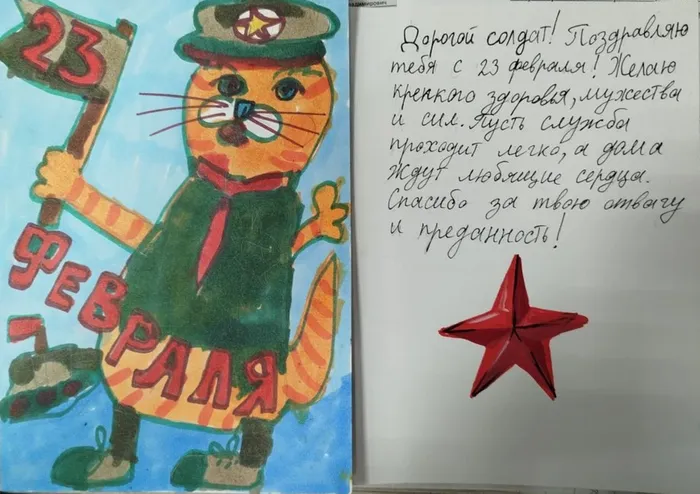 23
ФЕВРАЛЯ
Дорогой солдат! Поздравляю
тебя с 23 февраля! Желаю
крепкого здоровья, мужества
и сил. Пусть служба
проходит легко, а дома
ждут любящие сердца.
Спасибо за твою отвагу
и преданность!